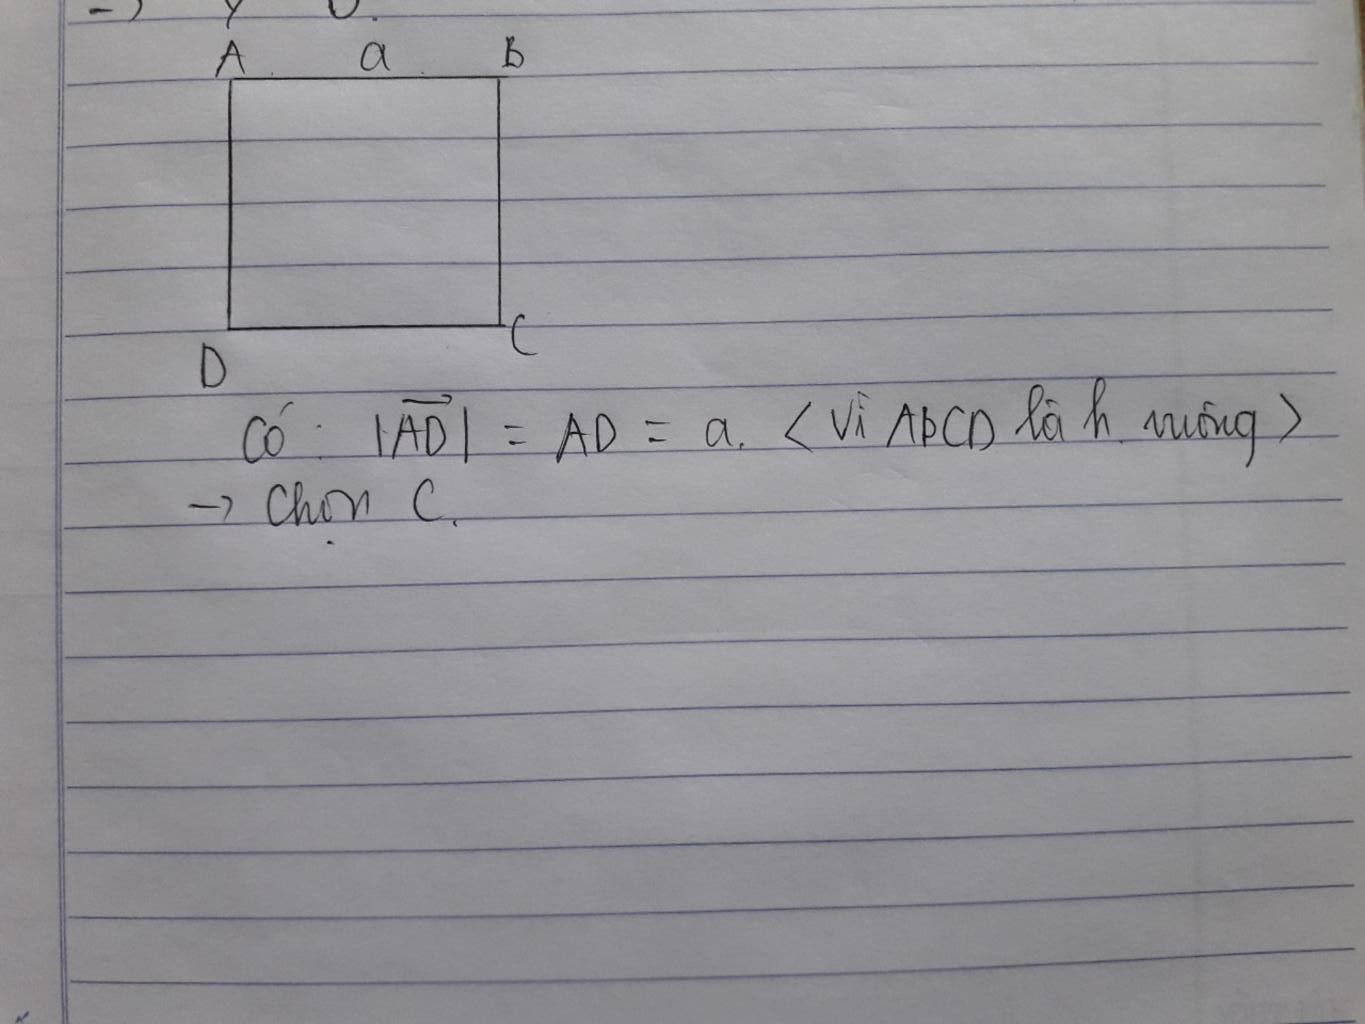 A a B
D C
Có: |\overrightarrow{AD}| = AD = a. < Vì ABCD là h. vuông >
→ Chọn C.